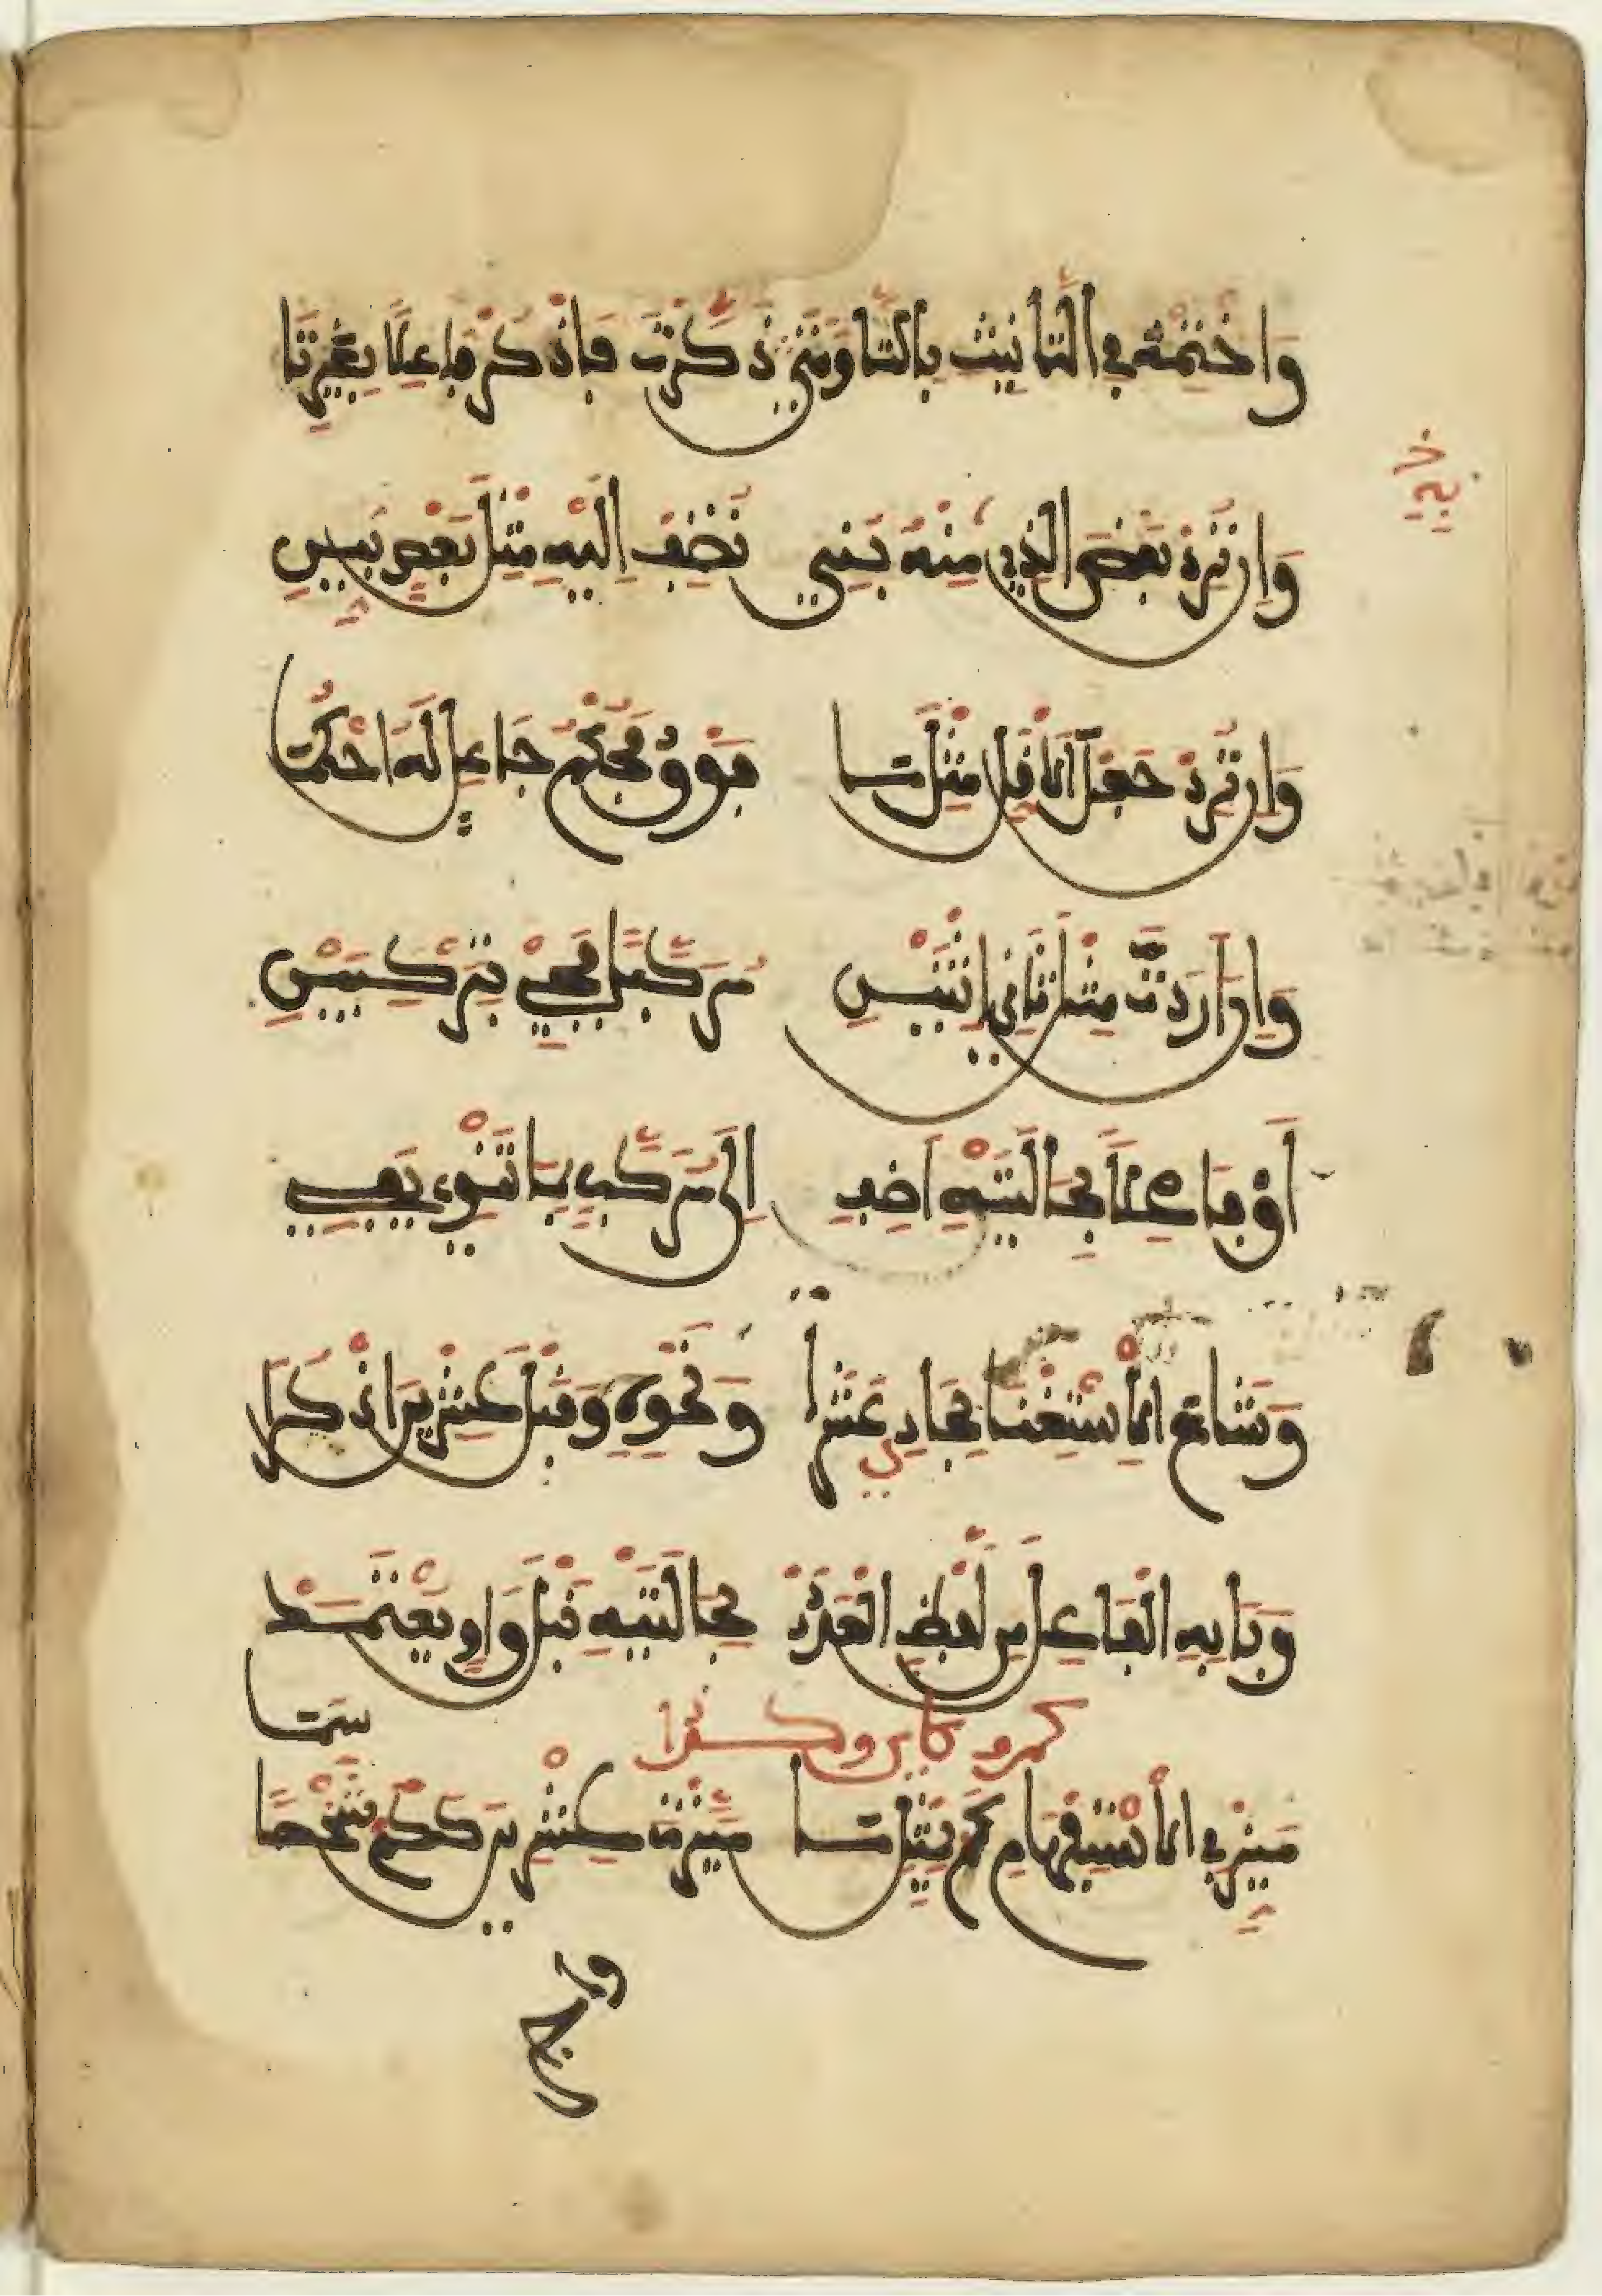 وَاخْتِمْهُ فِي التَّأْنِيثِ بِالتَّا وَمَتَى ذَكَّرْتَ فَاذْكُرْ فَاعِلًا بِغَيْرِ تَا
وَإِنْ تُرِدْ بَعْضَ الَّذِي مِنْهُ بُنِي تُضِفْ إِلَيْهِ مِثْلَ بَعْضٍ بَيِّنِ
وَإِنْ تُرِدْ جَعْلَ الْأَقَلِّ مِثْلَ مَا فَوْقُ فَحُكْمَ جَاعِلٍ لَهُ احْكُمَا
وَإِنْ أَرَدْتَ مِثْلَ ثَانِي اثْنَيْنِ مُرَكَّبًا فَجِئْ بِتَرْكِيبَيْنِ
أَوْ فَاعِلًا بِحَالَتَيْهِ أَضِفِ إِلَى مُرَكَّبٍ بِمَا تَنْوِي يَفِي
وَشَاعَ الْاِسْتِغْنَا بِحَادِي عَشَرَا وَنَحْوِهِ وَقَبْلَ عِشْرِينَ اذْكُرَا
وَبَابِهِ الْفَاعِلَ مِنْ لَفْظِ الْعَدَدْ بِحَالَتَيْهِ قَبْلَ وَاوٍ يُعْتَمَدْ
كم وكاين وكذا
مَيِّزْ فِي الْاِسْتِفْهَامِ كَمْ بِمِثْلِ مَا مَيَّزْتَ عِشْرِينَ كَكَمْ شَخْصًا سَمَا
وأجز